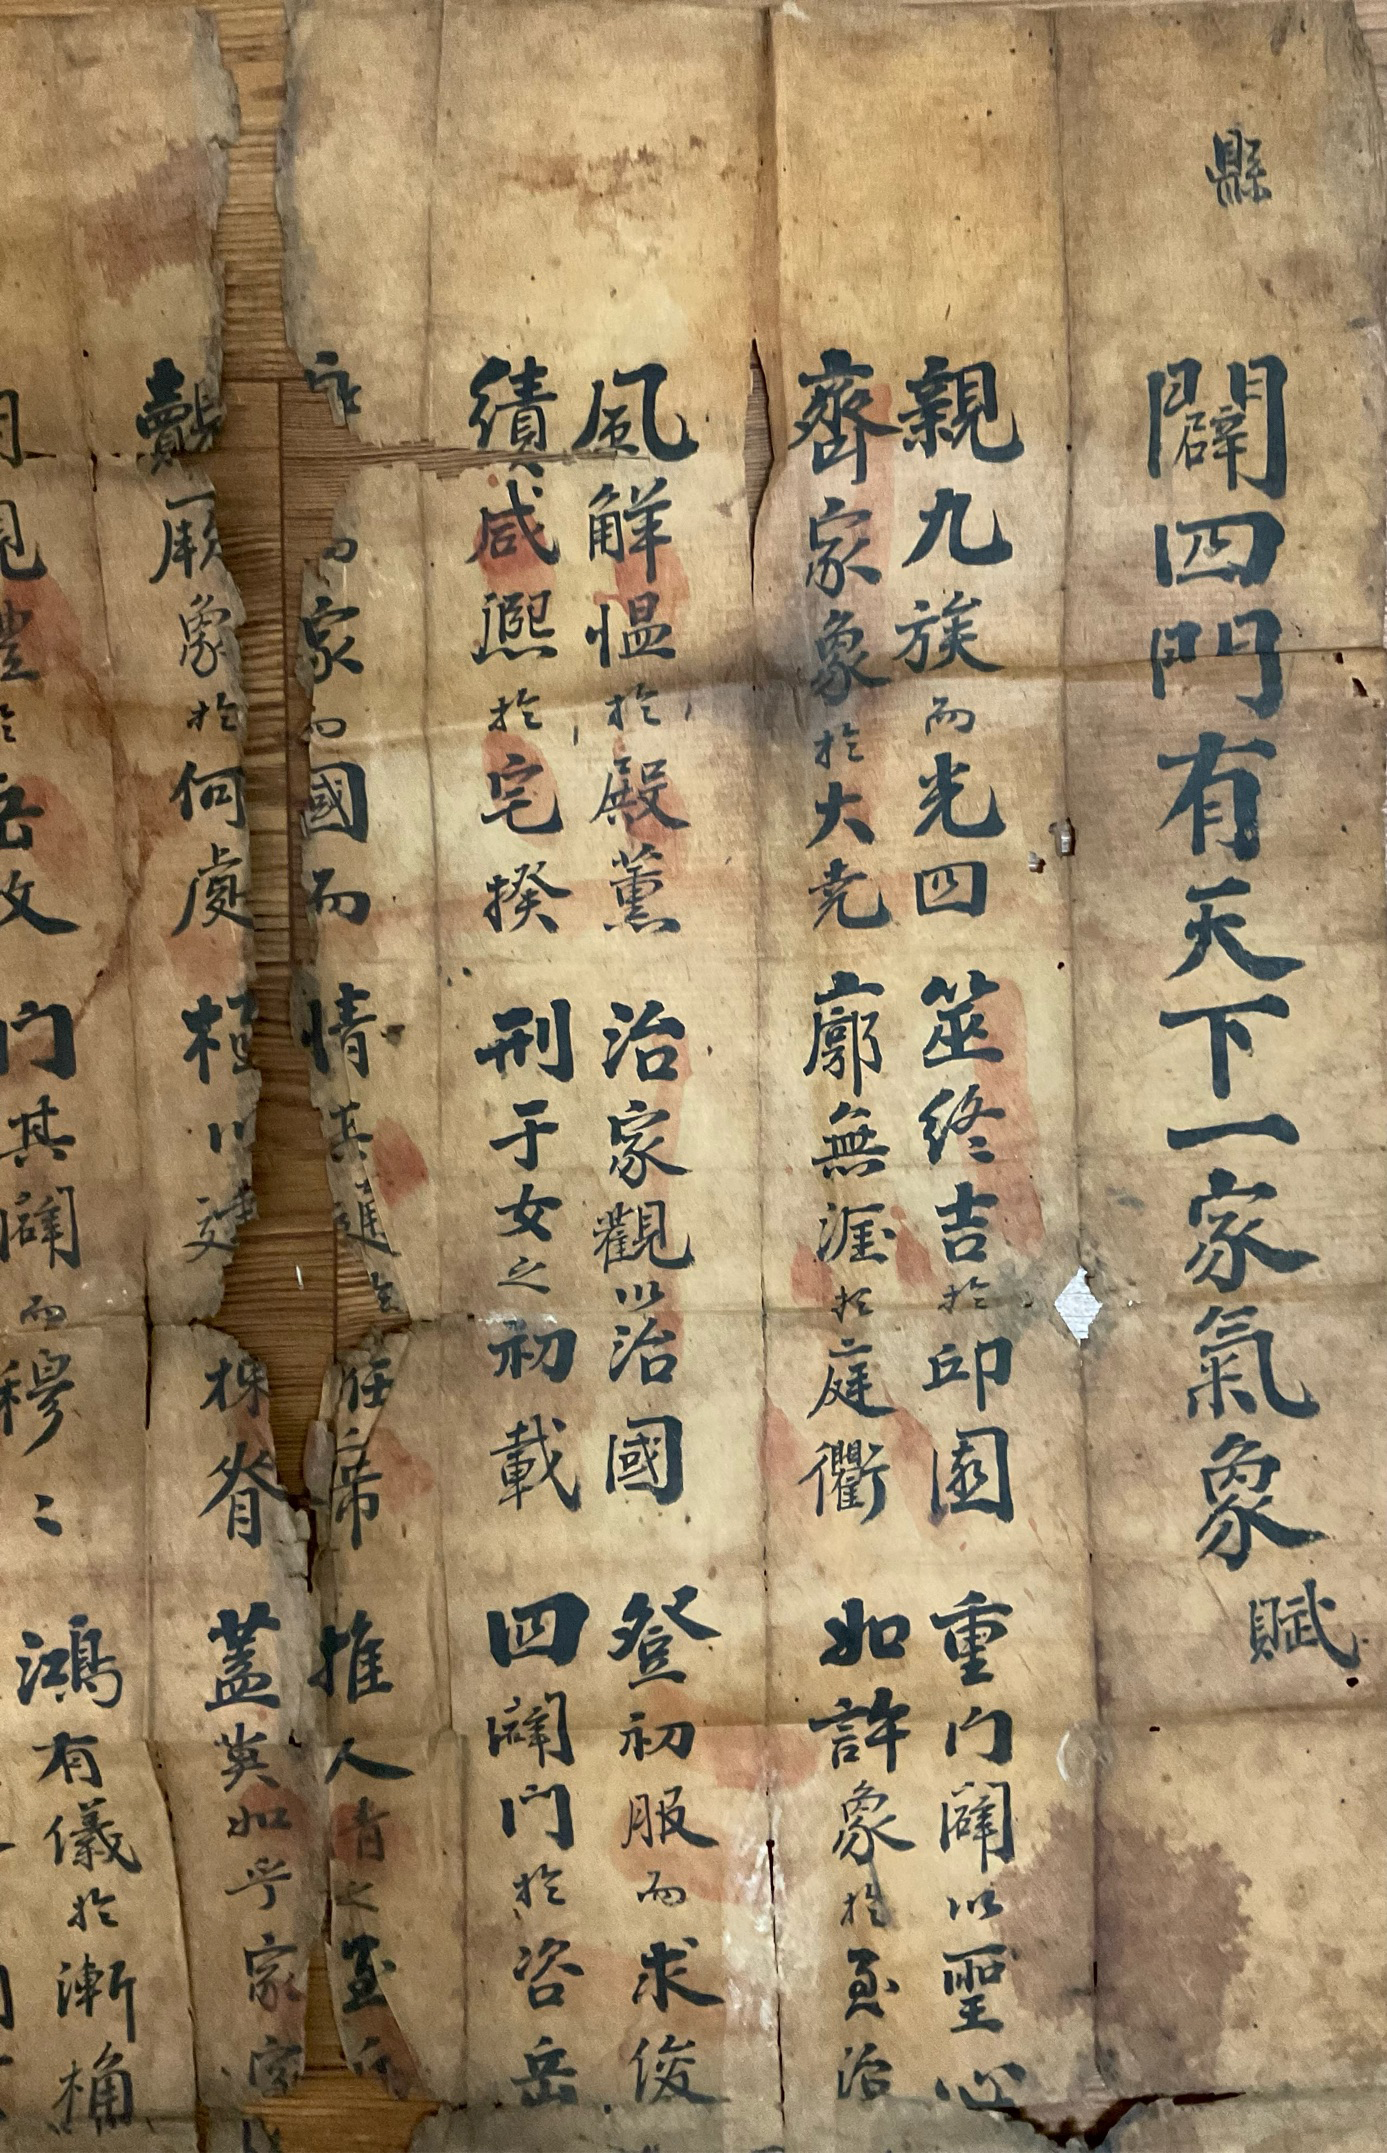 縣
闢四門有天下一家氣象賦
親九族而光四 筮終吉於邱園 重门闢以聖心
齊家象於大尭 廓無涯於庭衢 如許象於至治
風觧愠於殿薰 治家觀以治國 登初服而求俊
績咸熈於宅揆 刑于女之初載 四闢门於咨岳
家而國而 情其進 席 推人者之至
厥象於何處 株脊 蓋英如乎家
门其闢而穆〻 鴻有儀於漸桷